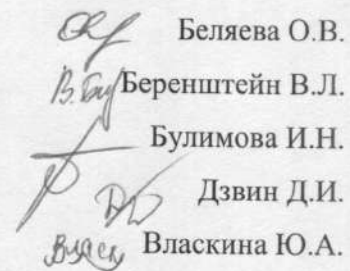 Беляева О.В.
Беренштейн В.Л.
Булимова И.Н.
Дзвин Д.И.
Власкина Ю.А.